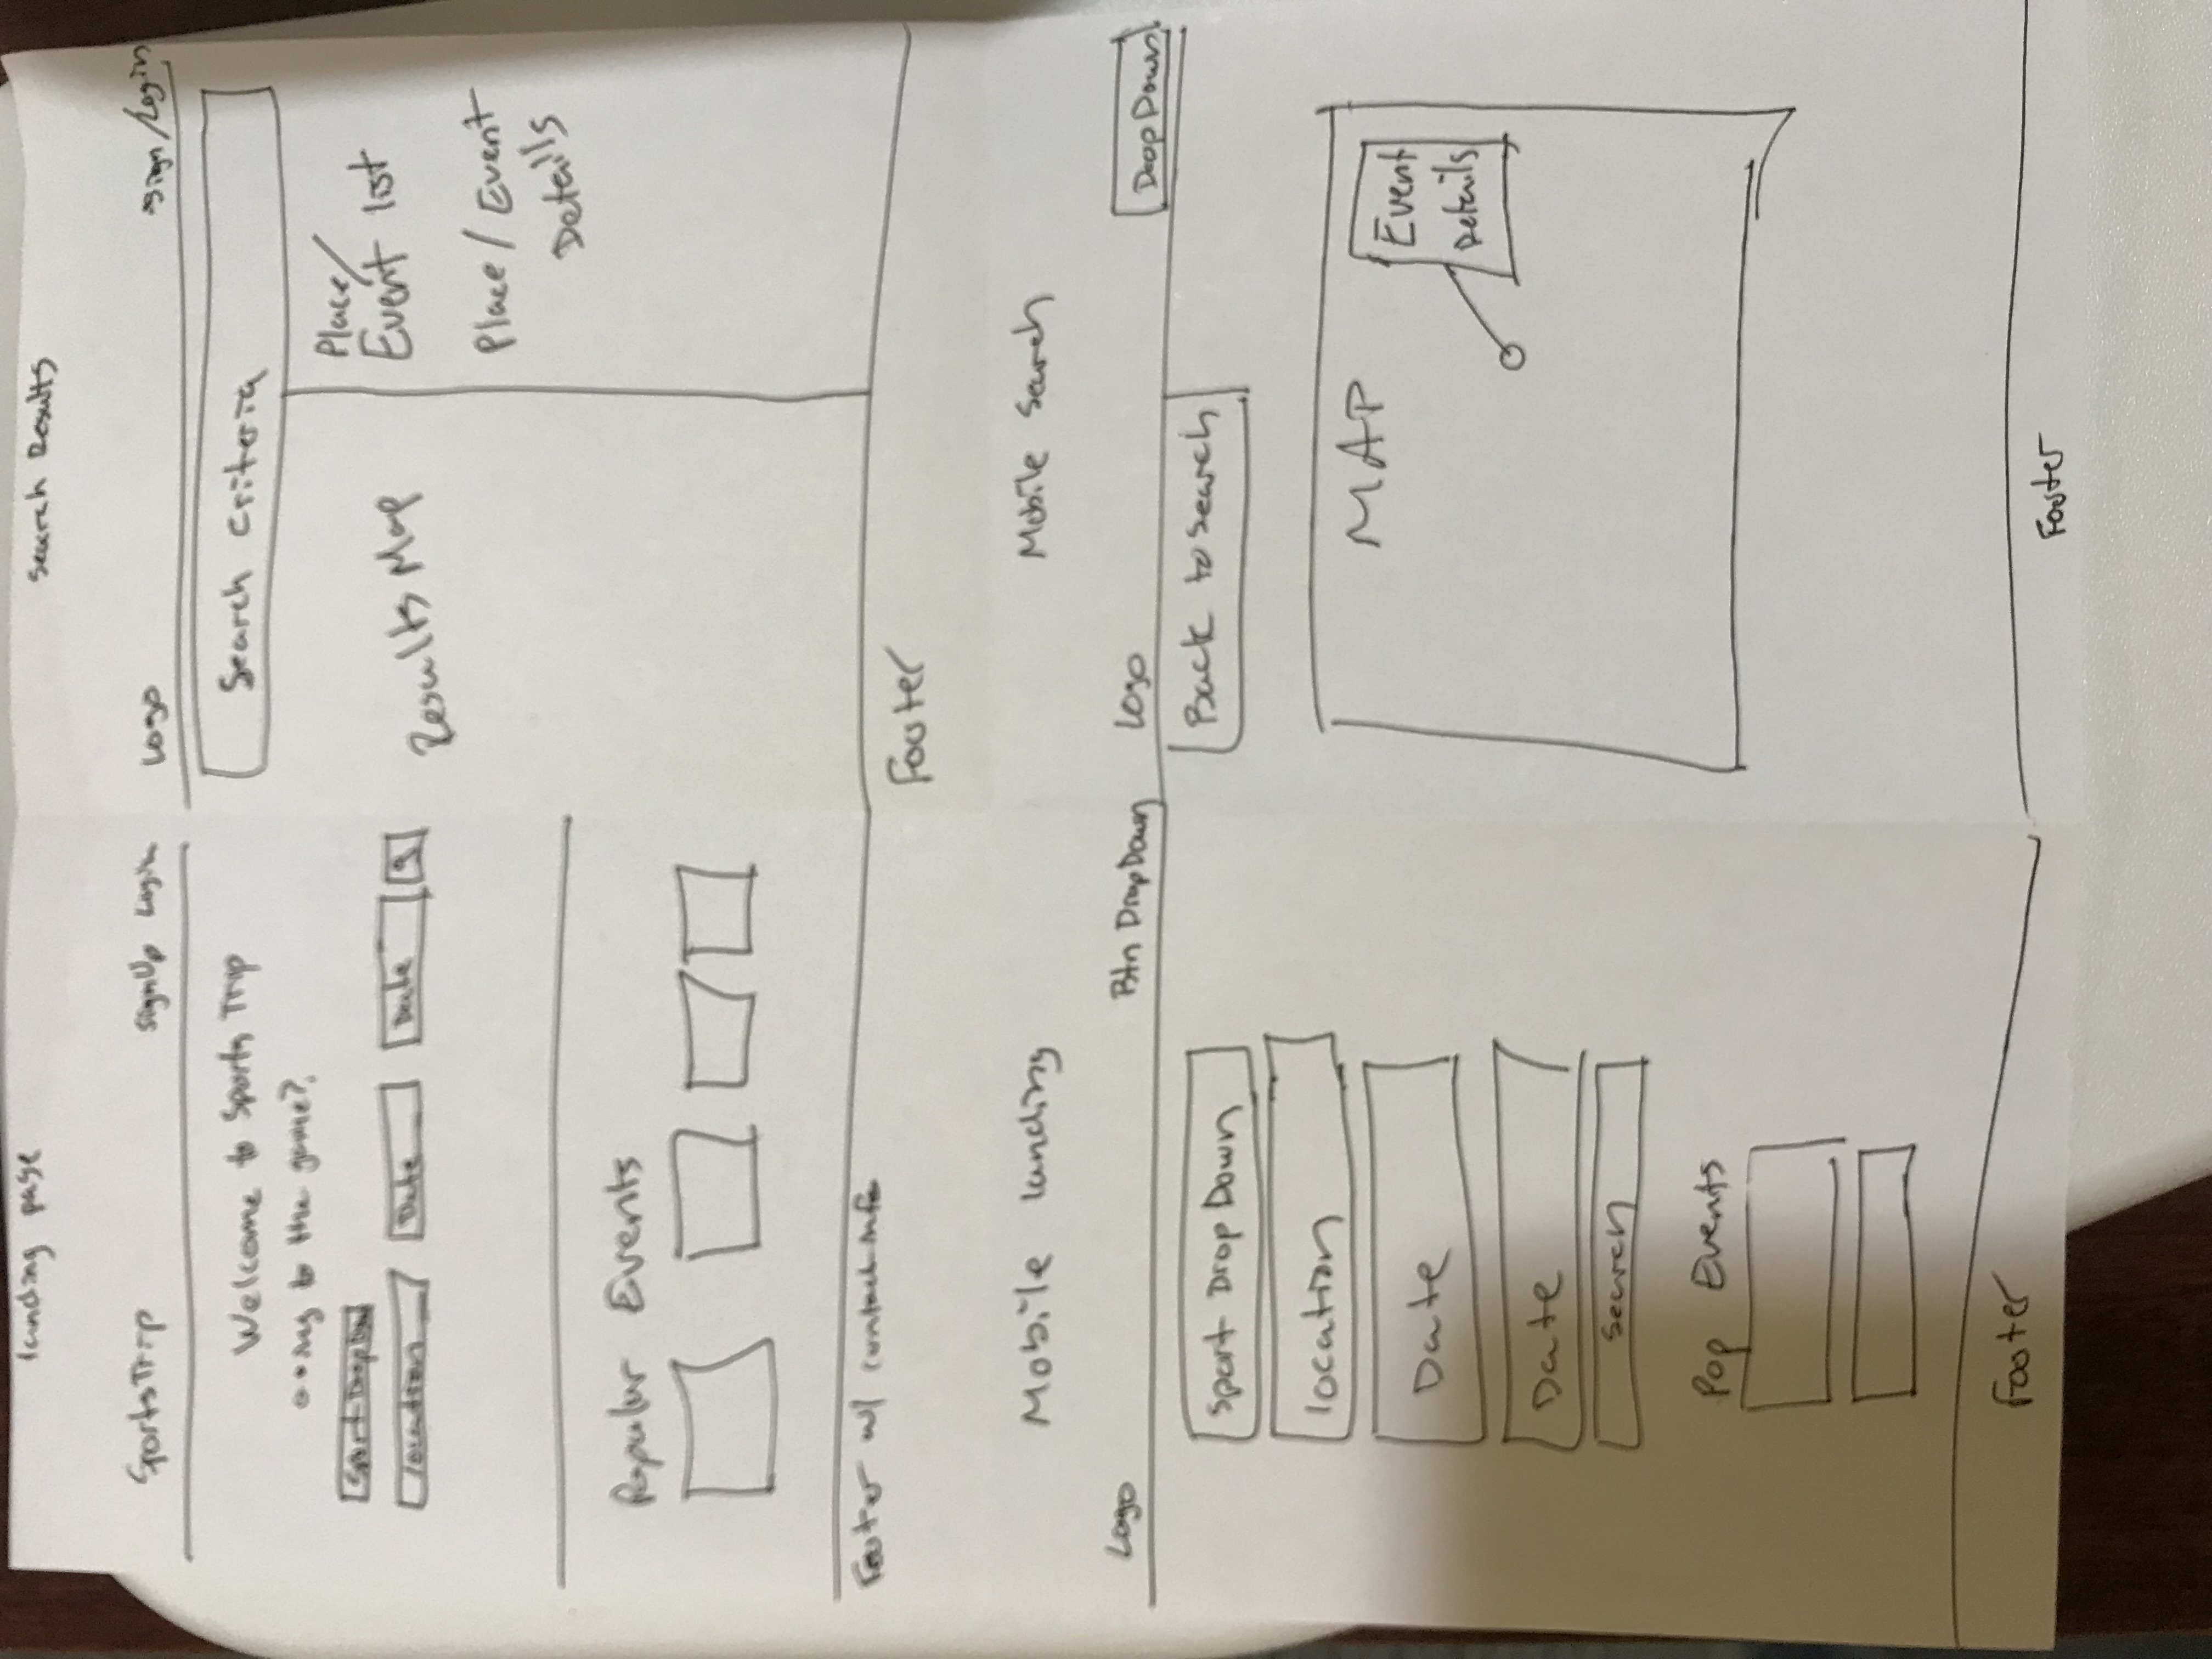 landing page
SportsTrip
SignUp Login
Welcome to Sports Trip
to the game?
Sport DropDown
location
Date
Date
Popular Events
Footer w/ contact info
Search Results
Logo
Sign/Login
Search Criteria
Results Map
Place/
Event list
Place/Event
Details
Footer
Mobile landing
Logo
Btn DropDown
Sport DropDown
location
Date
Date
Search
Pop Events
Footer
Mobile Search
Logo
DropDown
Back to search
MAP
Event
Details
Footer